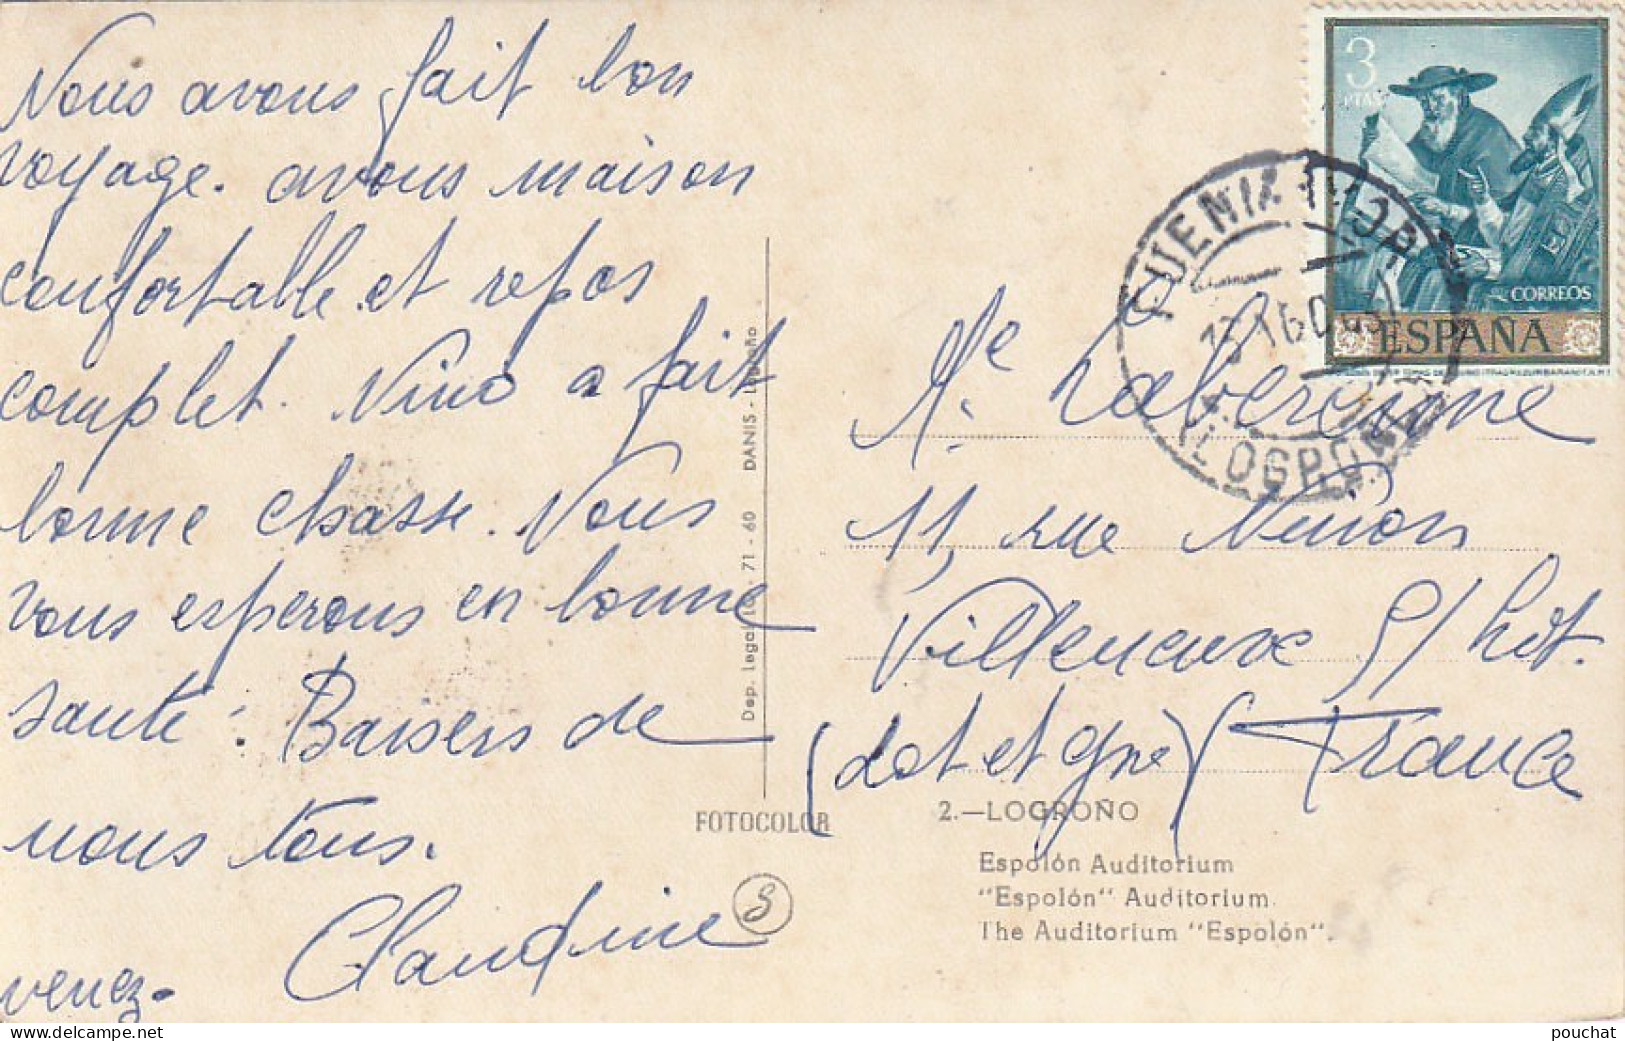 Nous avons fait bon
voyage. avons maison
confortable et repos
complet. Nino a fait
bonne chasse. Nous
vous esperons en bonne
santé. Baisers de
nous tous.
Claudine
venez.
Dep. Legal 10 - 71 - 60 DANIS - Logroño
FOTOCOLOR
3
PTAS
CORREOS
ESPAÑA
FUENMAYOR
LOGROÑO
Me Laberenne
11, rue Ninon
Villeneuve S/ Lot.
(Lot et Gne) France
2.—LOGROÑO
Espolón Auditorium
"Espolón" Auditorium.
The Auditorium "Espolón".
pouchat